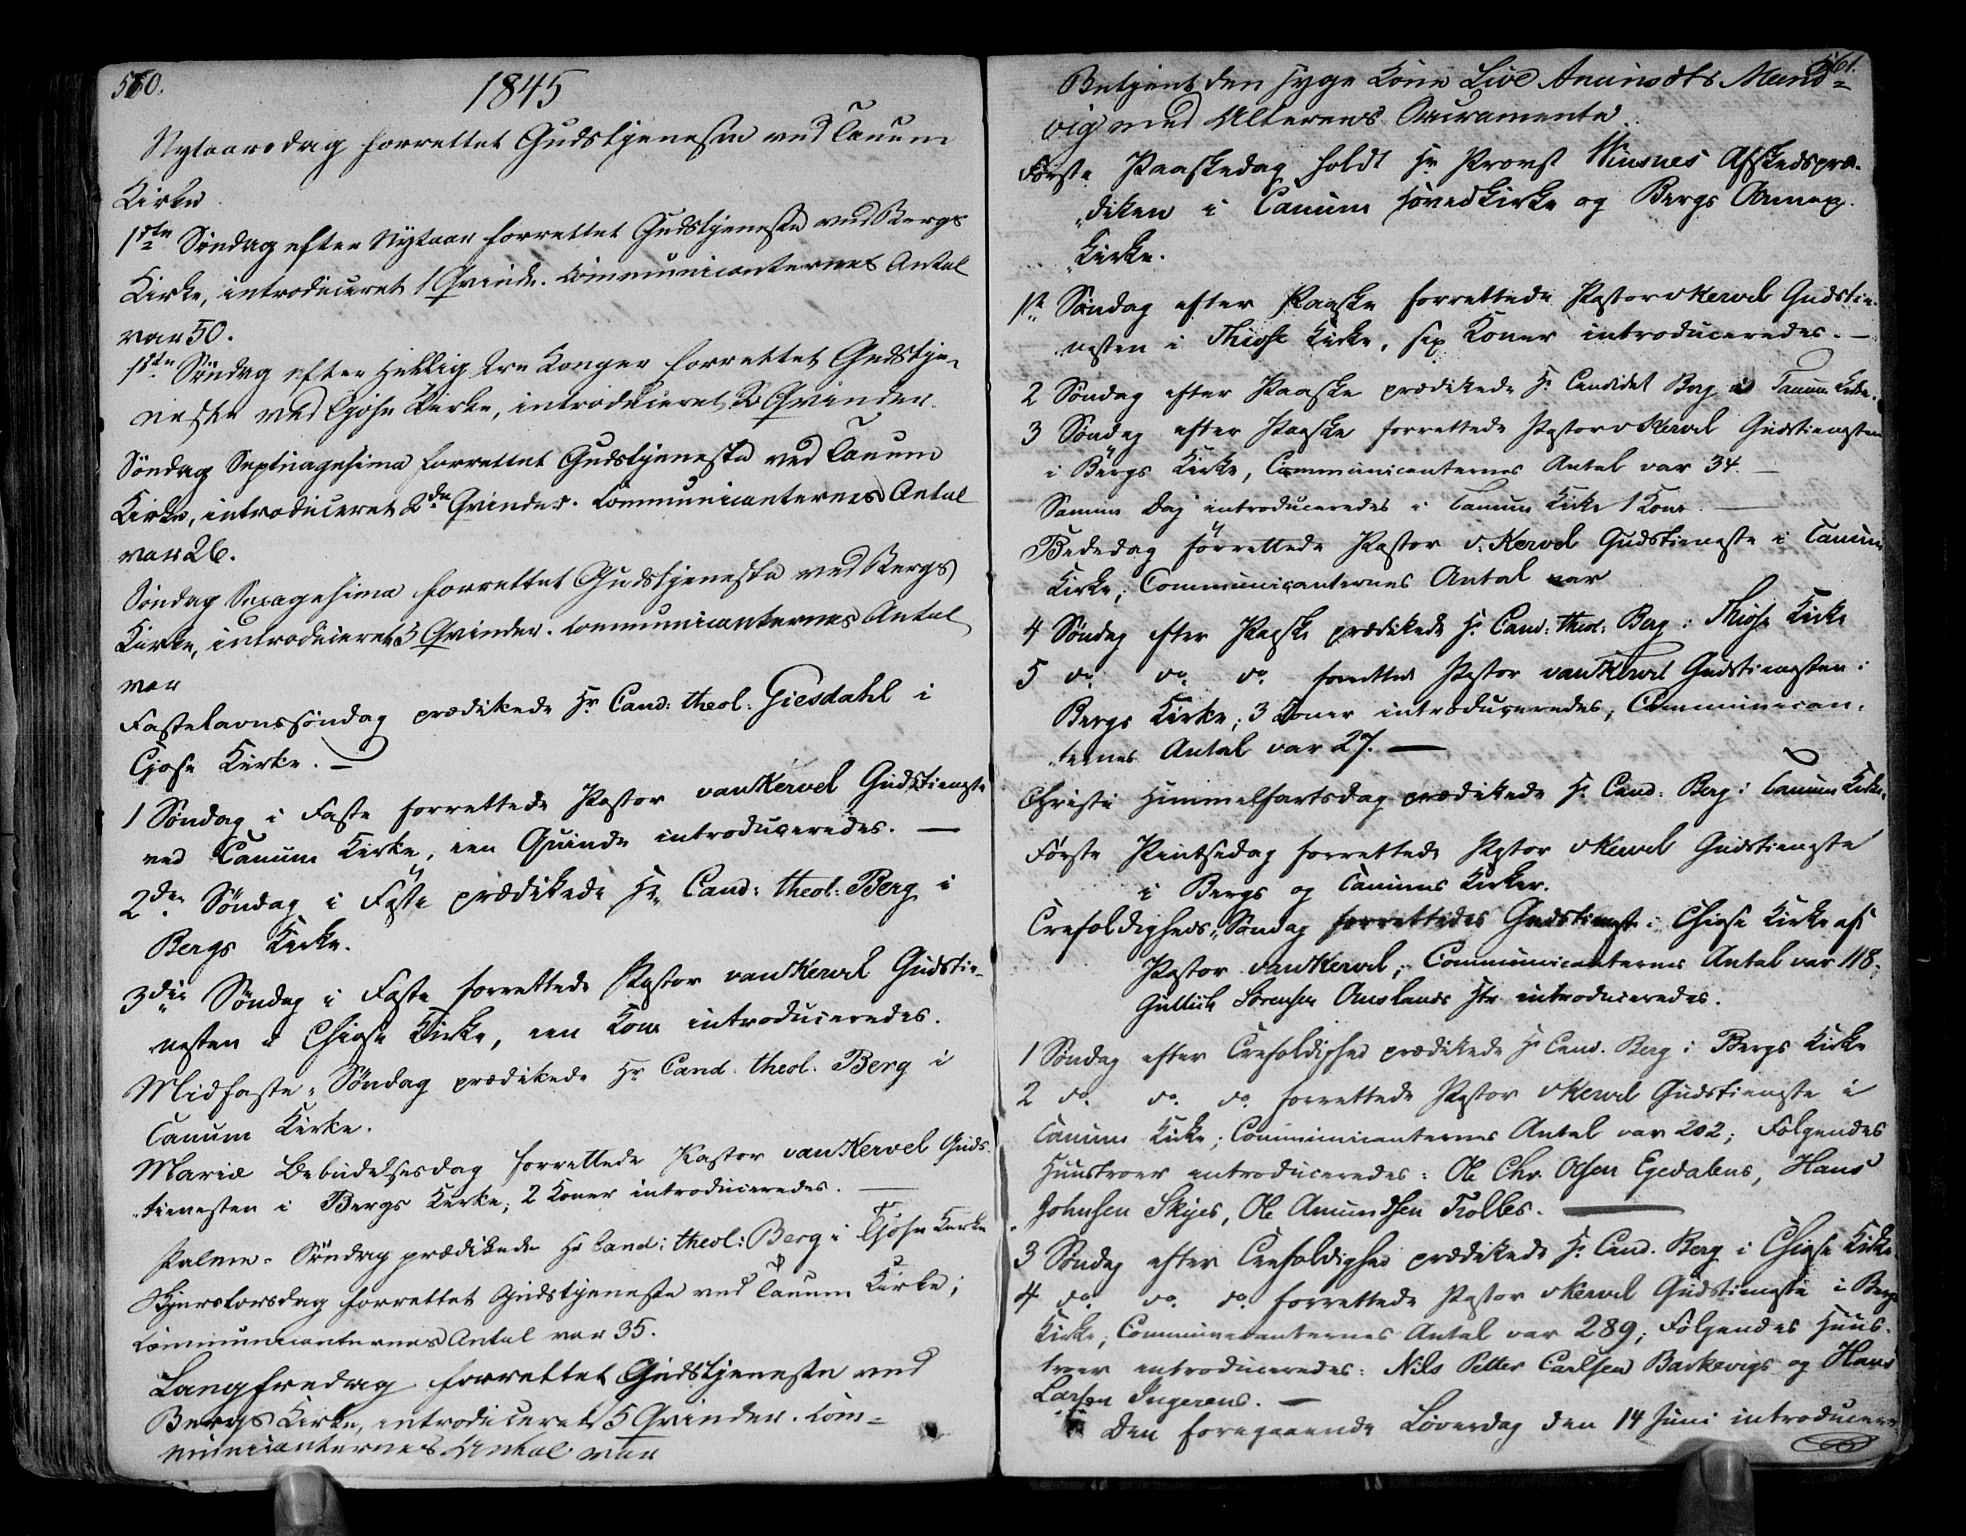 560.
1845
Nytaarsdag forrettet Gudstjeneste ved Tanum
Kirke
1ste Søndag efter Nytaar forrettet Gudstjeneste ved Bergs
Kirke, introduceret 1 Qvinde. Communicanternes Antal
var 50.
1ste Søndag efter Hellig tre Konger forrettet Gudstje-
neste ved Tjøse Kirke, introduceret 2 Qvinder.
Søndag Septuagesima forrettet Gudstjeneste ved Tanum
Kirke, introduceret 2de Qvinder. Communicanternes Antal
var 26.
Søndag Sexagesima forrettet Gudstjeneste ved Bergs
Kirke, introduceret 3 Qvinder. Communicanternes Antal
var
Fastelavnssøndag prædikede Hr Cand: theol: Giesdahl i
Tjose Kirke. —
1 Søndag i Faste forrettede Pastor van Kervel Gudstieneste
ved Tanum Kirke, een Quinde introduceredes. —
2den Søndag i Faste prædikede Hr Cand: theol: Berg i
Bergs Kirke.
3die Søndag i Faste forrettede Pastor van Kervel Gudstie-
nesten i Thiose Kirke, een Kone introduceredes.
Midfaste-Søndag prædikede Hr Cand. theol. Berg i
Tanum Kirke.
Mariæ Bebudelsesdag forrettede Pastor van Kervel Guds-
tienesten i Bergs Kirke; 2 Koner introduceredes. —
Palme-Søndag prædikede Hr Cand: theol: Berg i Tjose Kirke
Skjærtorsdag forrettet Gudstjeneste ved Tanum Kirke;
Communicanternes Antal var 35.
Langfredag forrettet Gudstjeneste ved
Bergs Kirke, introduceret 5 Qvinder. Com-
municanternes Antal var
561.
Betjent den syge Kone Live Amundts Mand-
vig med Alterens Sacramente
Første Paaskedag holdt Hr Provst Winsnes Afskedspræ-
diken i Tanum Hovedkirke og Bergs Annex-
Kirke.
1ste Søndag efter Paaske forrettede Pastor v Kervel Gudstie-
nesten i Thiose Kirke, sex Koner introduceredes. —
2 Søndag efter Paaske prædikede Hr Candidat Berg i Tanum Kirke.
3 Søndag efter Paaske forrettede Pastor v Kervel Gudstienesten
i Bergs Kirke, Communicanternes Antal var 34. —
Samme Dag introduceredes i Tanum Kirke 1 Kone. —
Bededag forrettede Pastor v. Kervel Gudstieneste i Tanum
Kirke; Communicanternes Antal var
4 Søndag efter Paaske prædikede Hr Cand: theol: Berg i Thiose Kirke
5 do. do. do. forrettede Pastor van Kervel Gudstienesten i
Bergs Kirke; 3 Koner introduceredes; Communican-
ternes Antal var 27. —
Christi Himmelfartsdag prædikede Hr Cand. Berg i Tanum Kirke.
Første Pintsedag forrettede Pastor v Kervel Gudstieneste
i Bergs og Tanums Kirker.
Trefoldigheds-Søndag forrettedes Gudstieneste i Thiose Kirke af
Pastor van Kervel; Communicanternes Antal var 118;
Gullich Sørensen Omslands Hr introduceredes.
1 Søndag efter Trefoldighed prædikede Hr Cand. Berg i Bergs Kirke
2 do. do. do. forrettede Pastor v Kervel Gudstieneste i
Tanum Kirke; Communicanternes Antal var 202; Følgendes
Huustroer introduceredes: Ole Chr. Olsen Egedalens, Hans
Johnsen Skijes, Ole Amundsen Trolles. —
3 Søndag efter Trefoldighed prædikede Hr Cand. Berg i Thiose Kirke
4 do. do. do. forrettede Pastor v Kervel Gudstieneste i Bergs
Kirke; Communicanternes Antal var 289; Følgendes Huus-
troer introduceredes: Nils Petter Carlsen Barkevigs og Hans
Larsen Ingerens. —
Den foregaaende Løverdag den 14 Juni introducere-